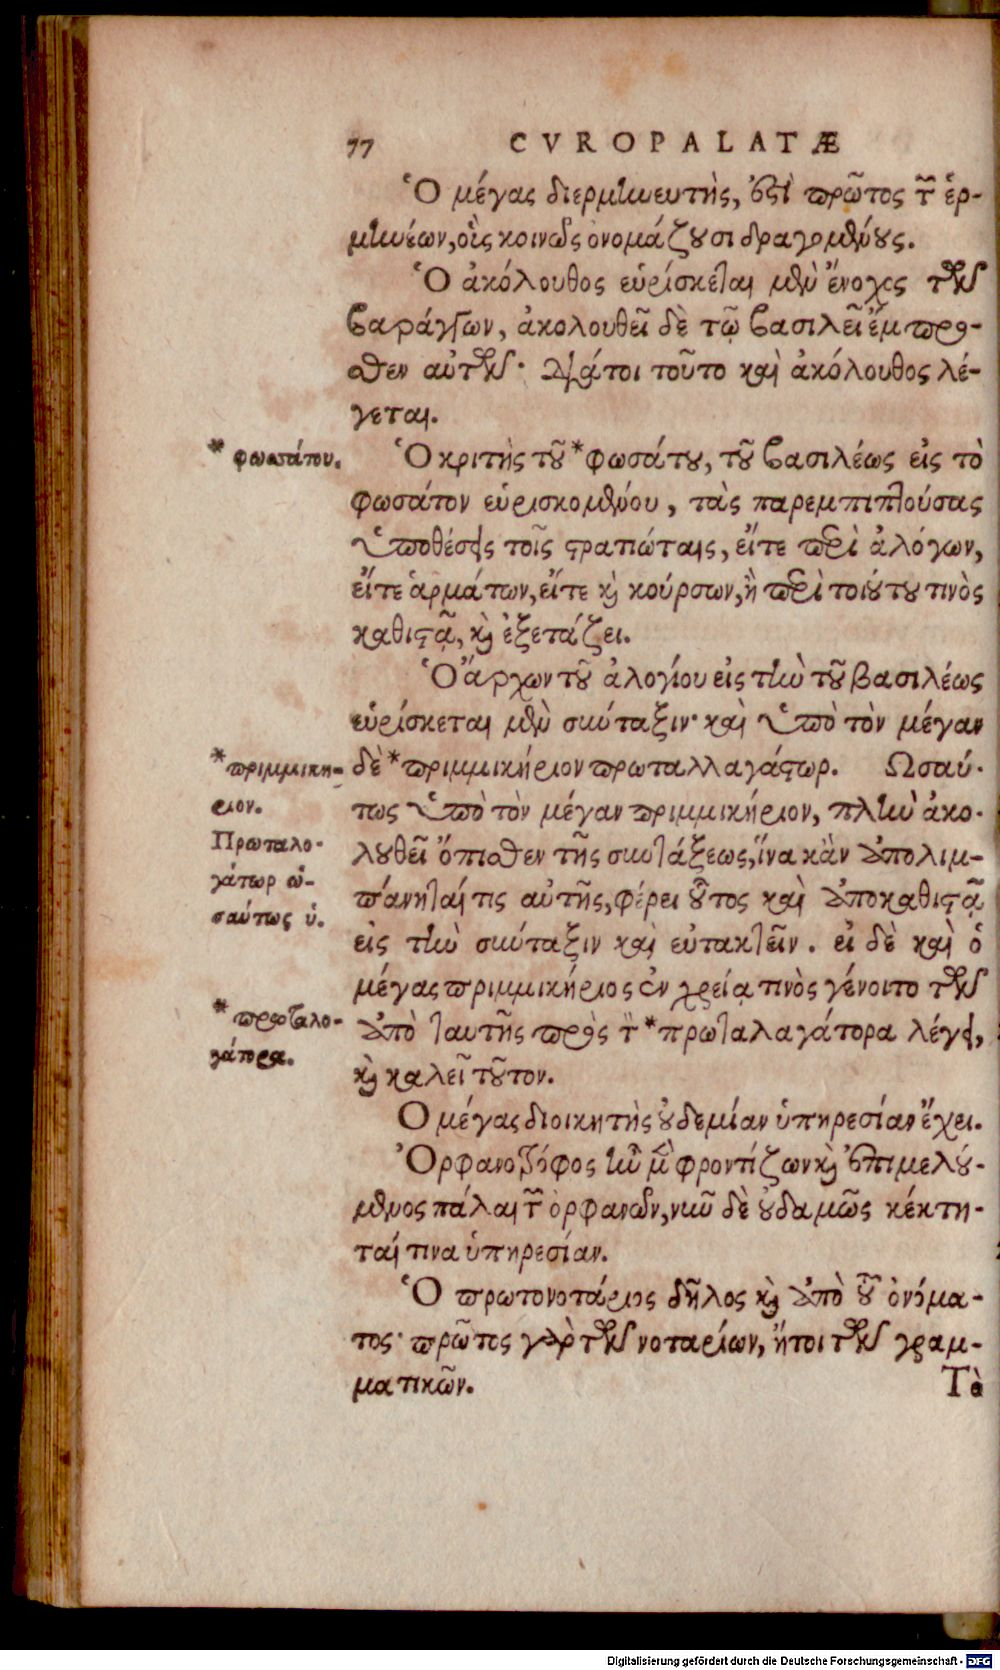 77 CVROPALATÆ
Ὁ μέγας διερμηνευτὴς, ἐστὶ πρῶτος τῶν ἑρ-
μηνέων, οὓς κοινῶς ὀνομάζουσι δραγομένους.
Ὁ ἀκόλουθος εὑρίσκεται μὲν ἔνοχος τῶν
βαράγγων, ἀκολουθεῖ δὲ τῷ βασιλεῖ ἔμπρο-
σθεν αὐτῶν· διάτοι τοῦτο καὶ ἀκόλουθος λέ-
γεται.
* φωσάτου.
Ὁ κριτὴς τοῦ * φωσάτου, τοῦ βασιλέως εἰς τὸ
φωσάτον εὑρισκομένου, τὰς παρεμπιπτούσας
ὑποθέσεις τοῖς στρατιώταις, εἴτε περὶ ἀλόγων,
εἴτε ἁρμάτων, εἴτε καὶ κούρσων, ἢ περὶ τοιούτου τινὸς
καθιστᾷ, καὶ ἐξετάζει.
Ὁ ἄρχων τοῦ ἀλογίου εἰς τὴν τοῦ βασιλέως
εὑρίσκεται μὲν σύνταξιν· καὶ ὑπὸ τὸν μέγαν
δὲ * πριμμικήριον πρωταλλαγάτωρ. Ὡσαύ-
* πριμμικη-
ριον.
τως ὑπὸ τὸν μέγαν πριμμικήριον, πλὴν ἀκο-
Πρωταλο-
γάτωρ ὡ-
σαύτως ὑ.
λουθεῖ ὄπισθεν τῆς συντάξεως, ἵνα κἂν ἀπολιμ-
πάνηταί τις αὐτῆς, φέρει οὗτος καὶ ἀποκαθιστᾷ
εἰς τὴν σύνταξιν καὶ εὐτακτεῖν. εἰ δὲ καὶ ὁ
μέγας πριμμικήριος ἐν χρείᾳ τινὸς γένοιτο τῶν
* πρωταλο-
γάτορα.
ἀπὸ ταύτης πρὸς τὸν * πρωταλαγάτορα λέγει,
καὶ καλεῖ τοῦτον.
Ὁ μέγας διοικητὴς οὐδεμίαν ὑπηρεσίαν ἔχει.
Ὁ Ὀρφανοτρόφος ἦν μὲν φροντίζων καὶ ἐπιμελού-
μενος πάλαι τῶν ὀρφανῶν, νῦν δὲ οὐδαμῶς κέκτη-
ταί τινα ὑπηρεσίαν.
Ὁ πρωτονοτάριος δῆλος καὶ ἀπὸ τοῦ ὀνόμα-
τος· πρῶτος γὰρ τῶν νοταρίων, ἤτοι τῶν γραμ-
ματικῶν.
Τὸ
Digitalisierung gefördert durch die Deutsche Forschungsgemeinschaft - DFG